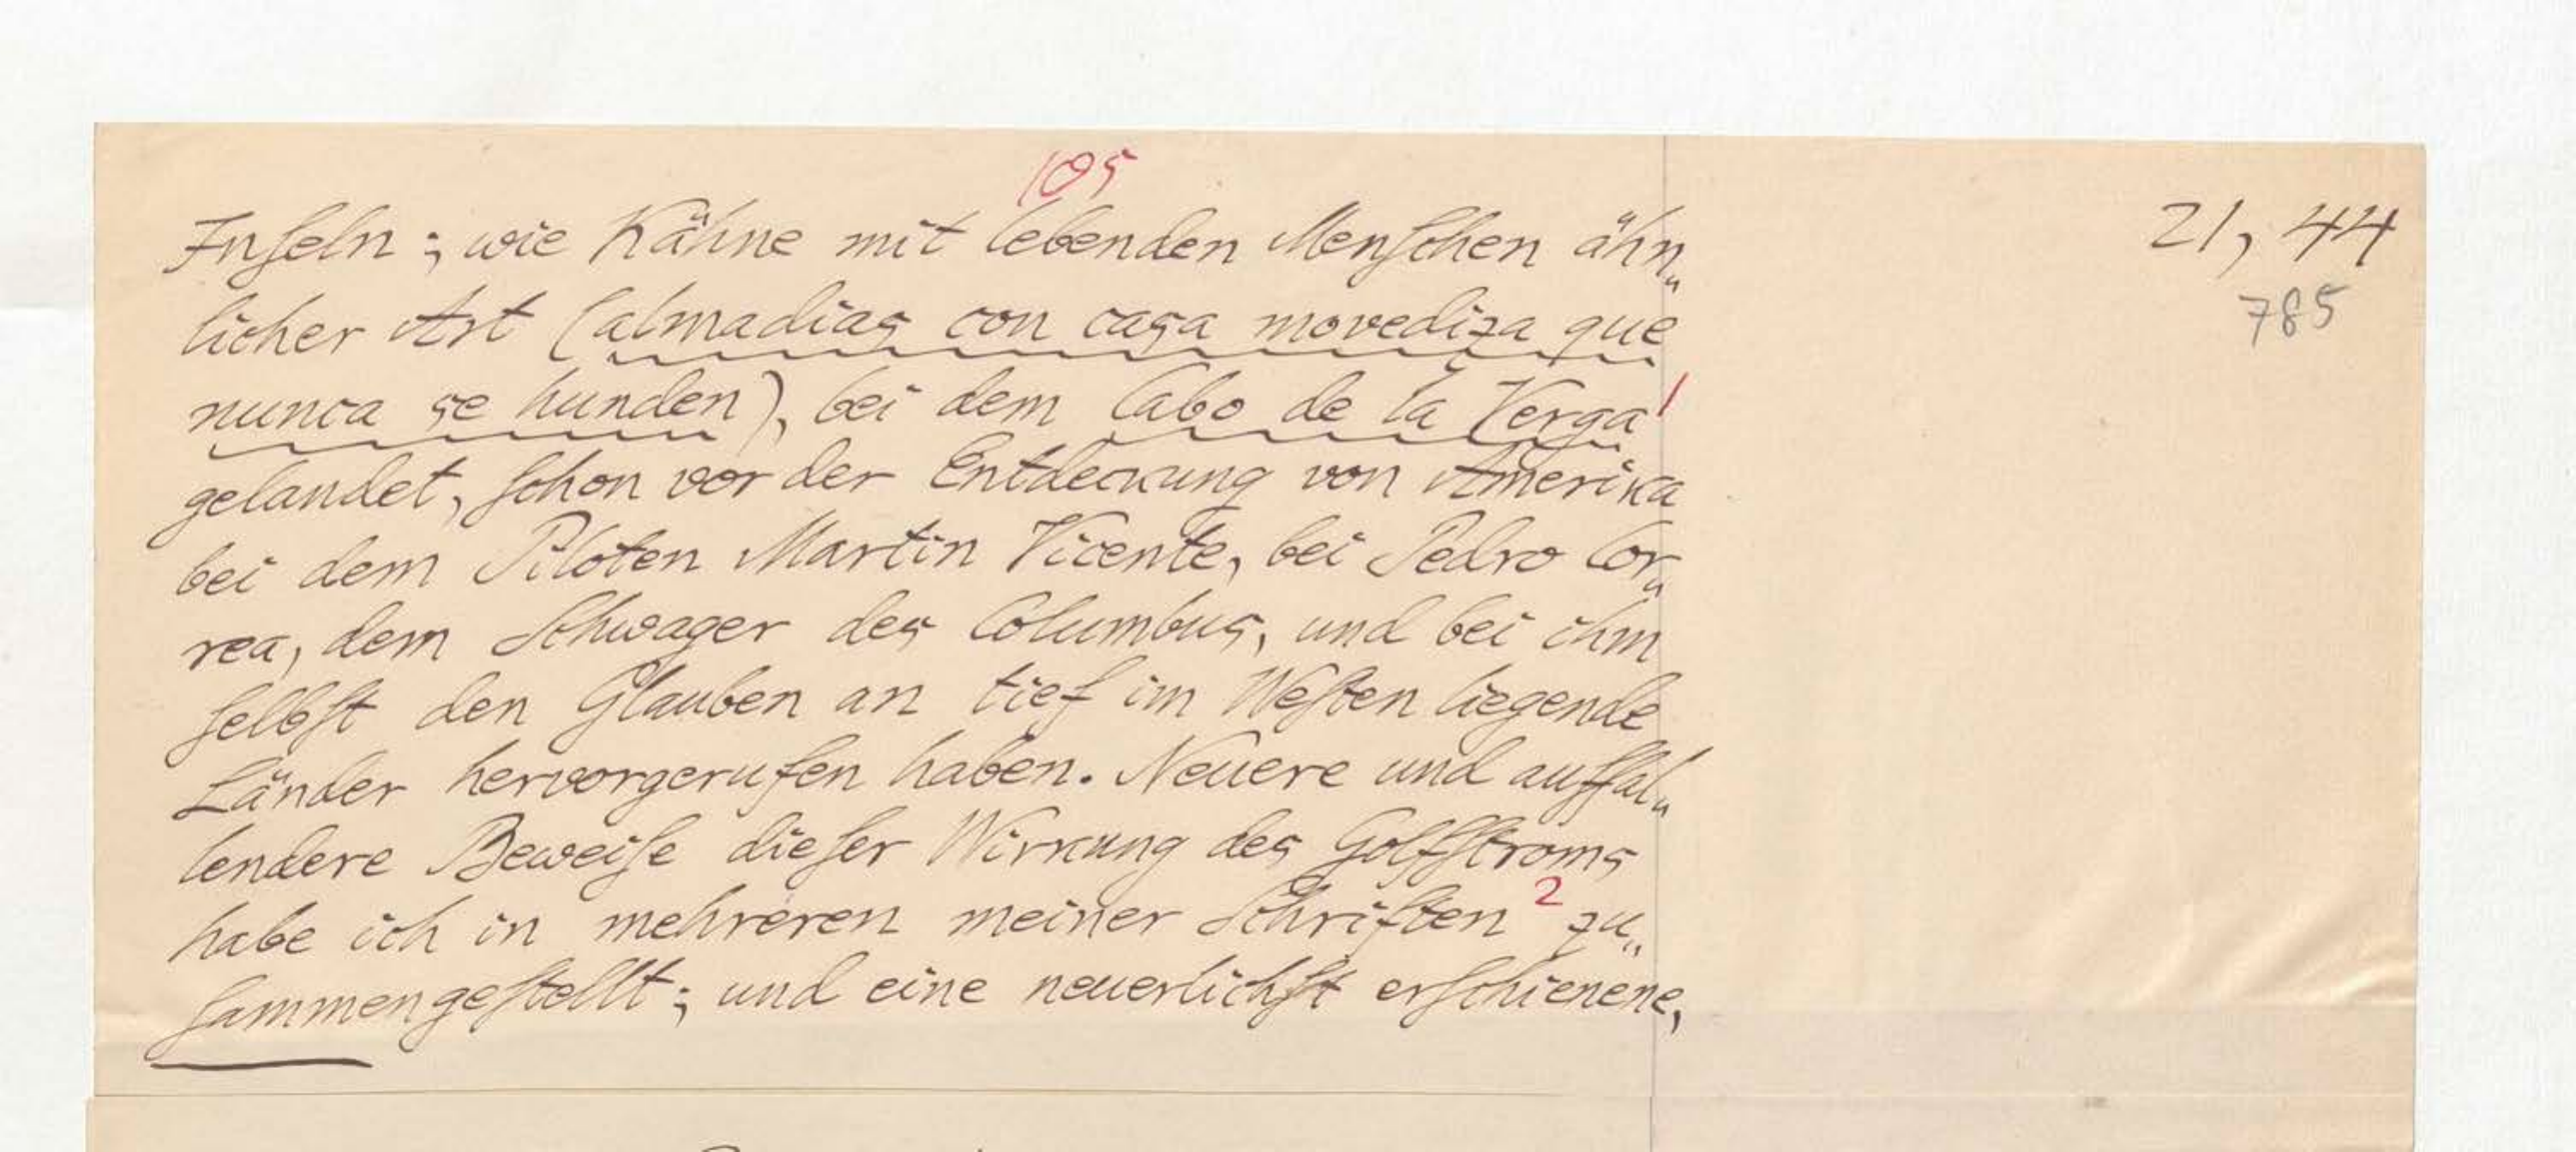 105
21, 44
785
Inſeln; wie Kähne mit lebenden Menſchen ähn„
licher Art (almadias con casa movediza que
nunca se hunden), bei dem Cabo de la Verga 1
gelandet, ſchon vor der Entdeckung von Amerika
bei dem Piloten Martin Vicente, bei Pedro Cor„
rea, dem Schwager des Columbus, und bei ihm
ſelbſt den Glauben an tief im Weſten liegende
Länder hervorgerufen haben. Neuere und auffal„
lendere Beweiſe dieſer Wirkung des Golfſtroms
habe ich in mehreren meiner Schriften 2 zu„
ſammengeſtellt; und eine neuerlichſt erſchienene,